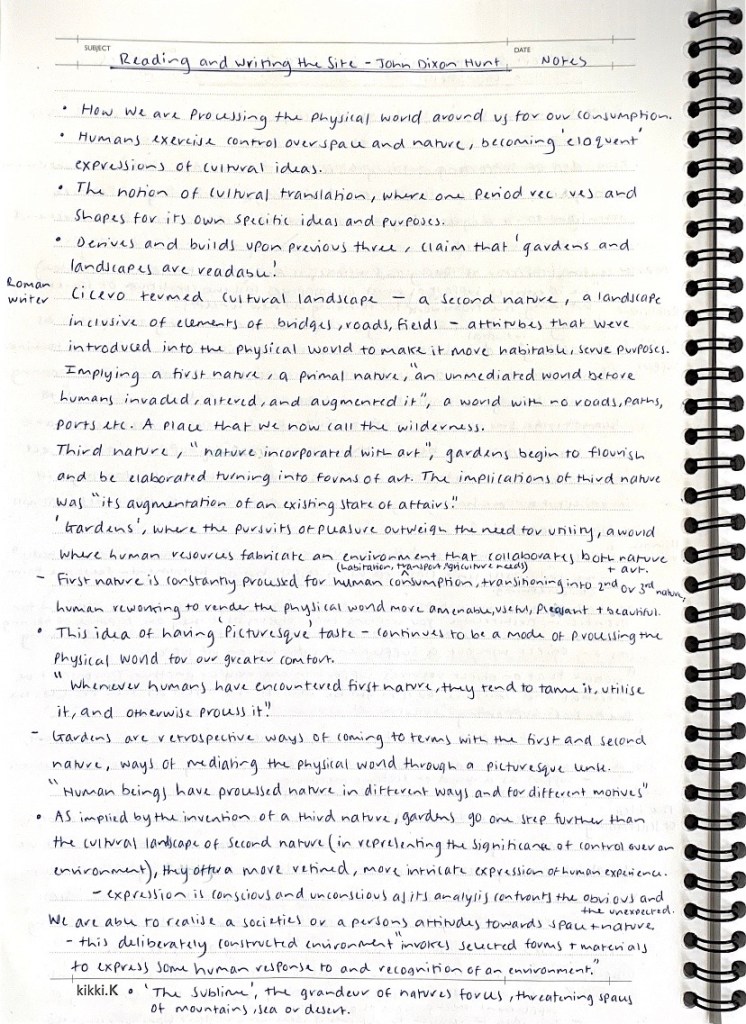 SUBJECT
DATE
Reading and Writing the Site - John Dixon Hunt
Notes
• How we are processing the physical world around us for our consumption.
• Humans exercise control over space and nature, becoming 'eloquent'
expressions of cultural ideas.
• The notion of cultural translation, where one period rec ves and
shapes for its own specific ideas and purposes.
• Derives and builds upon previous three, claim that 'gardens and
landscapes are readable.'
Roman
writer
Cicero termed cultural landscape - a second nature, a landscape
inclusive of elements of bridges, roads, fields - attributes that were
introduced into the physical world to make it more habitable, serve purposes.
Implying a first nature, a primal nature, "an unmediated world before
humans invaded, altered, and augmented it", a world with no roads, paths,
ports etc. A place that we now call the wilderness.
Third nature, "nature incorporated with art", gardens begin to flourish
and be elaborated turning into forms of art. The implications of third nature
was "its augmentation of an existing state of affairs."
'Gardens', where the pursuits of pleasure outweigh the need for utility, a world
where human resources fabricate an environment that collaborates both nature
+ art.
(habitation, transport, agriculture needs)
- First nature is constantly processed for human consumption, transitioning into 2nd or 3rd nature,
human reworking to render the physical world more amenable, useful, pleasant + beautiful.
• This idea of having 'picturesque' taste - continues to be a mode of processing the
physical world for our greater comfort.
"Whenever humans have encountered first nature, they tend to tame it, utilise
it, and otherwise process it."
- Gardens are retrospective ways of coming to terms with the first and second
nature, ways of mediating the physical world through a picturesque
"Human beings have processed nature in different ways and for different motives"
• As implied by the invention of a third nature, gardens go one step further than
the cultural landscape of second nature (in representing the significance of control over an
environment), they offer a more refined, more intricate expression of human experience.
- expression is conscious and unconscious as its analysis confronts the obvious and
the unexpected.
We are able to realise a societies or a persons attitudes towards space + nature.
- this deliberately constructed environment "invokes selected forms + materials
to express some human response to and recognition of an environment."
kikki.K
• 'The Sublime', the grandeur of natures forces, threatening spaces
of mountains, sea or desert.